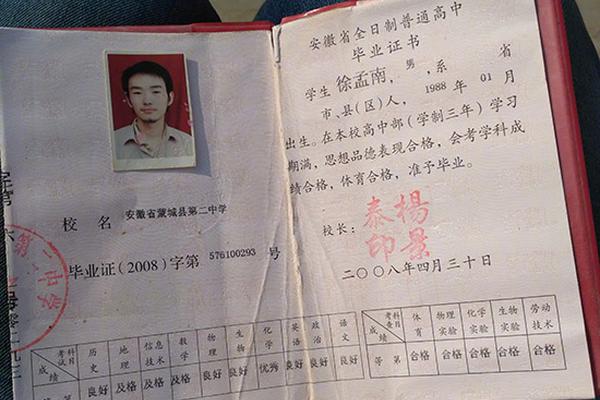 校 名 安徽省蒙城县第二中学
毕业证(2008)字第 576100293 号
第二中学
考试科目 历史 地理 信息技术 数学 物理 生物 化学 英语 政治 语文
成绩 良好 及格 及格 及格 良好 良好 优秀 良好 良好 良好
安徽省全日制普通高中
毕业证书
学生 徐孟南,男,系 省
市、县(区)人, 1988 年 01 月
出生。在本校高中部(学制三年)学习
期满,思想品德表现合格,会考学科成
绩合格,体育合格,准予毕业。
校长: 杨景泰印
二〇〇八年四月三十日
考查科目 体育 物理实验 化学实验 生物实验 劳动技术
成绩
等 第 合格 合格 合格 合格 合格